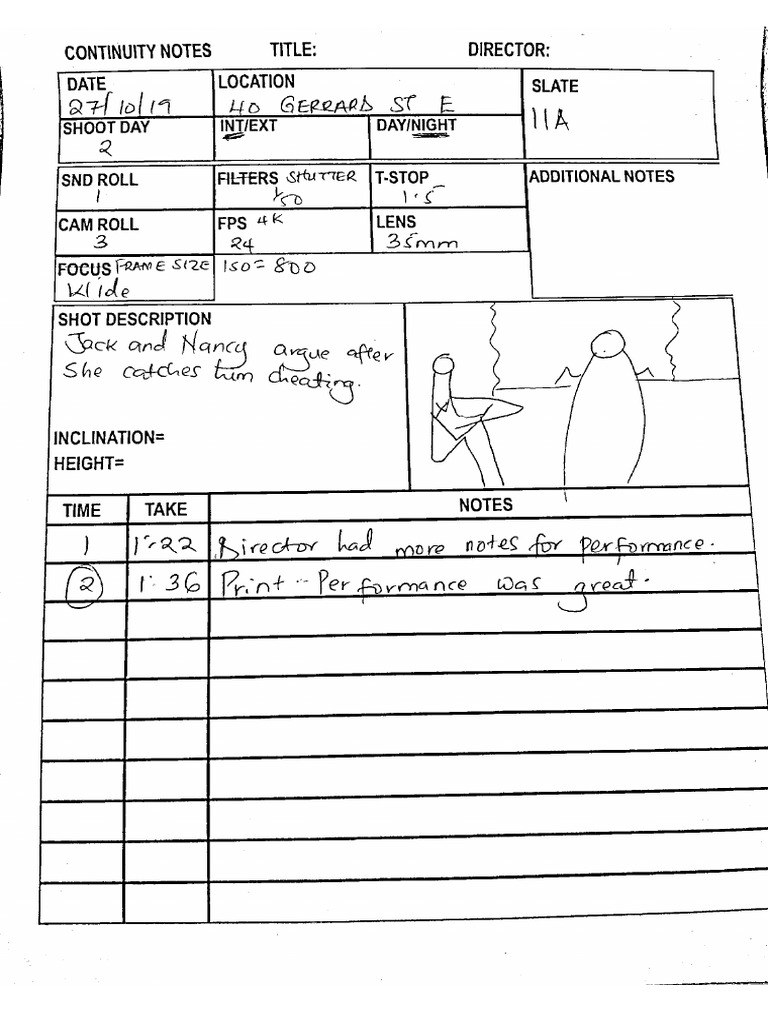 CONTINUITY NOTES TITLE: DIRECTOR:
DATE LOCATION SLATE
27/10/19 40 GERRARD ST E 11A
SHOOT DAY INT/EXT DAY/NIGHT
2
SND ROLL FILTERS SHUTTER T-STOP ADDITIONAL NOTES
1 1/50 1.5
CAM ROLL FPS 4K LENS
3 24 35mm
FOCUS FRAME SIZE ISO = 800
Wide
SHOT DESCRIPTION
Jack and Nancy argue after
She catches him cheating.
INCLINATION=
HEIGHT=
TIME TAKE NOTES
1 1:22 Director had more notes for performance.
2 1:36 Print - Performance was great.